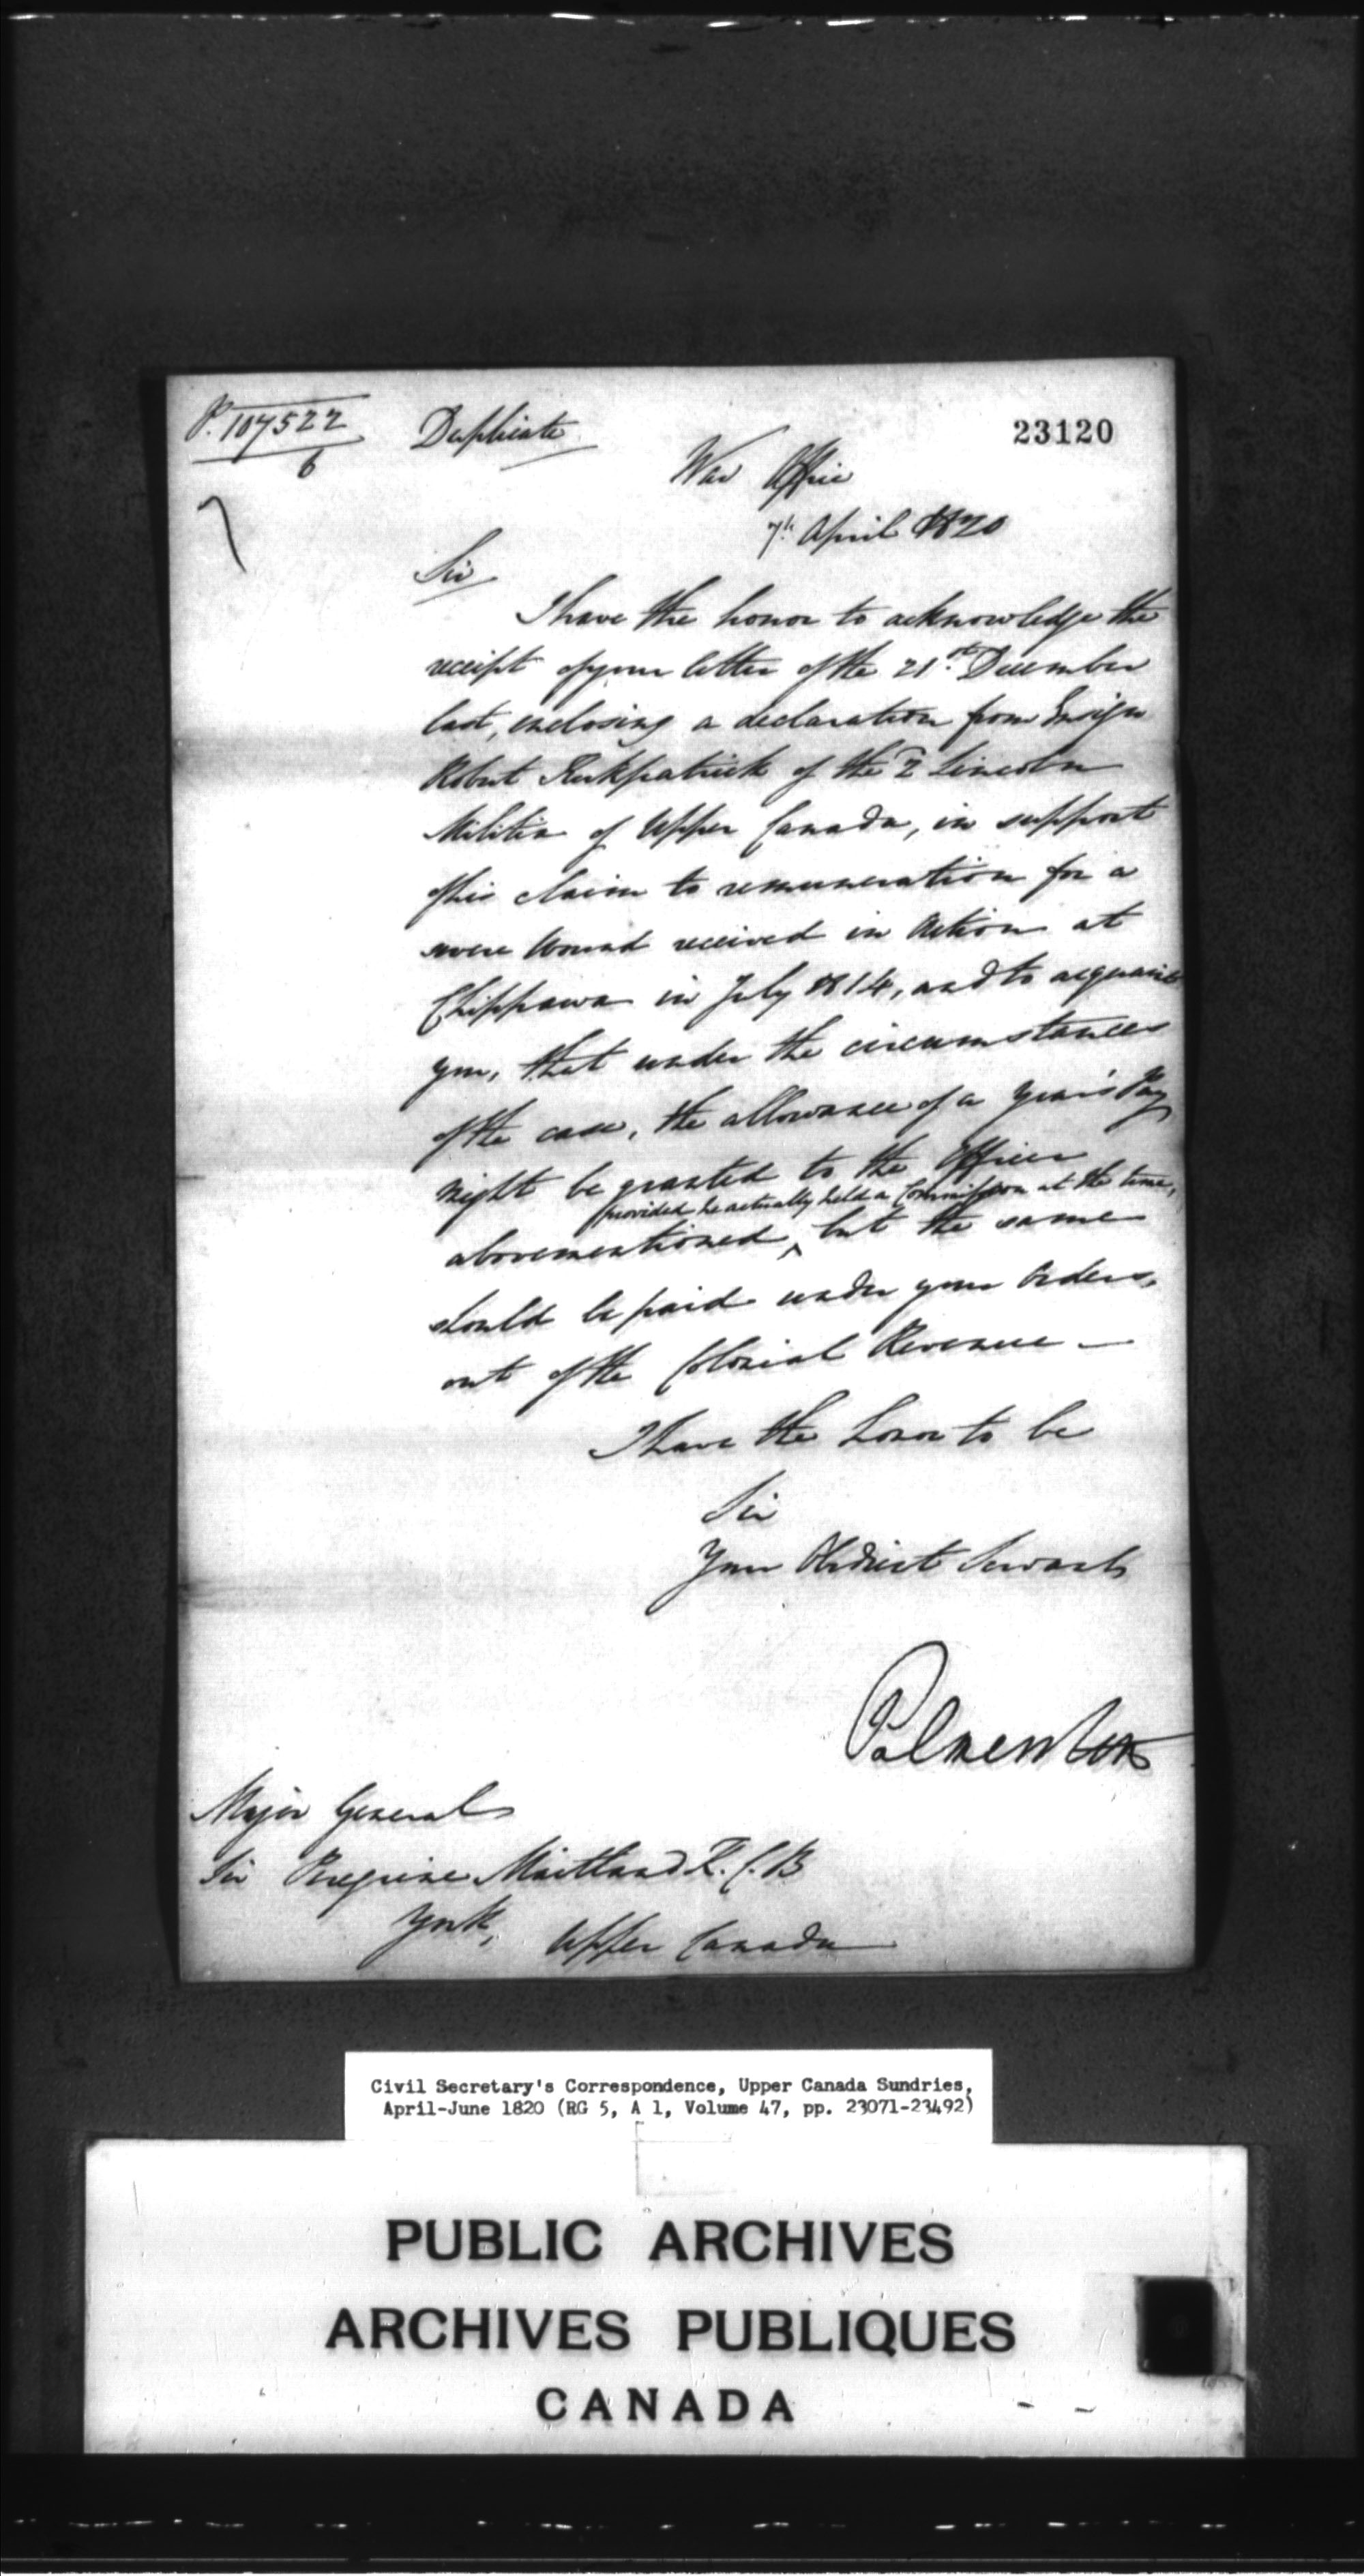 P. 107522
6
Duplicate
23120
War Office
7th April 1820
Sir
I have the honor to acknowledge the
receipt of your letter of the 21st December
last, enclosing a declaration from Ensign
Robert Kirkpatrick of the 2 Lincoln
Militia of Upper Canada, in support
of his claim to remuneration for a
severe Wound received in Action at
Chippawa in July 1814, and to acquaint
you, that under the circumstances
of the case, the allowance of a year's Pay
might be granted to the Officer
provided he actually held a Commission at the time,
abovementioned, but the same
should be paid under your Orders,
out of the Colonial Revenue —
I have the honor to be
Sir
Your Obedient Servant
Palmerston
Major General
Sir Peregrine Maitland K.C.B
York, Upper Canada
Civil Secretary's Correspondence, Upper Canada Sundries,
April-June 1820 (RG 5, A 1, Volume 47, pp. 23071-23492)
PUBLIC ARCHIVES
ARCHIVES PUBLIQUES
CANADA